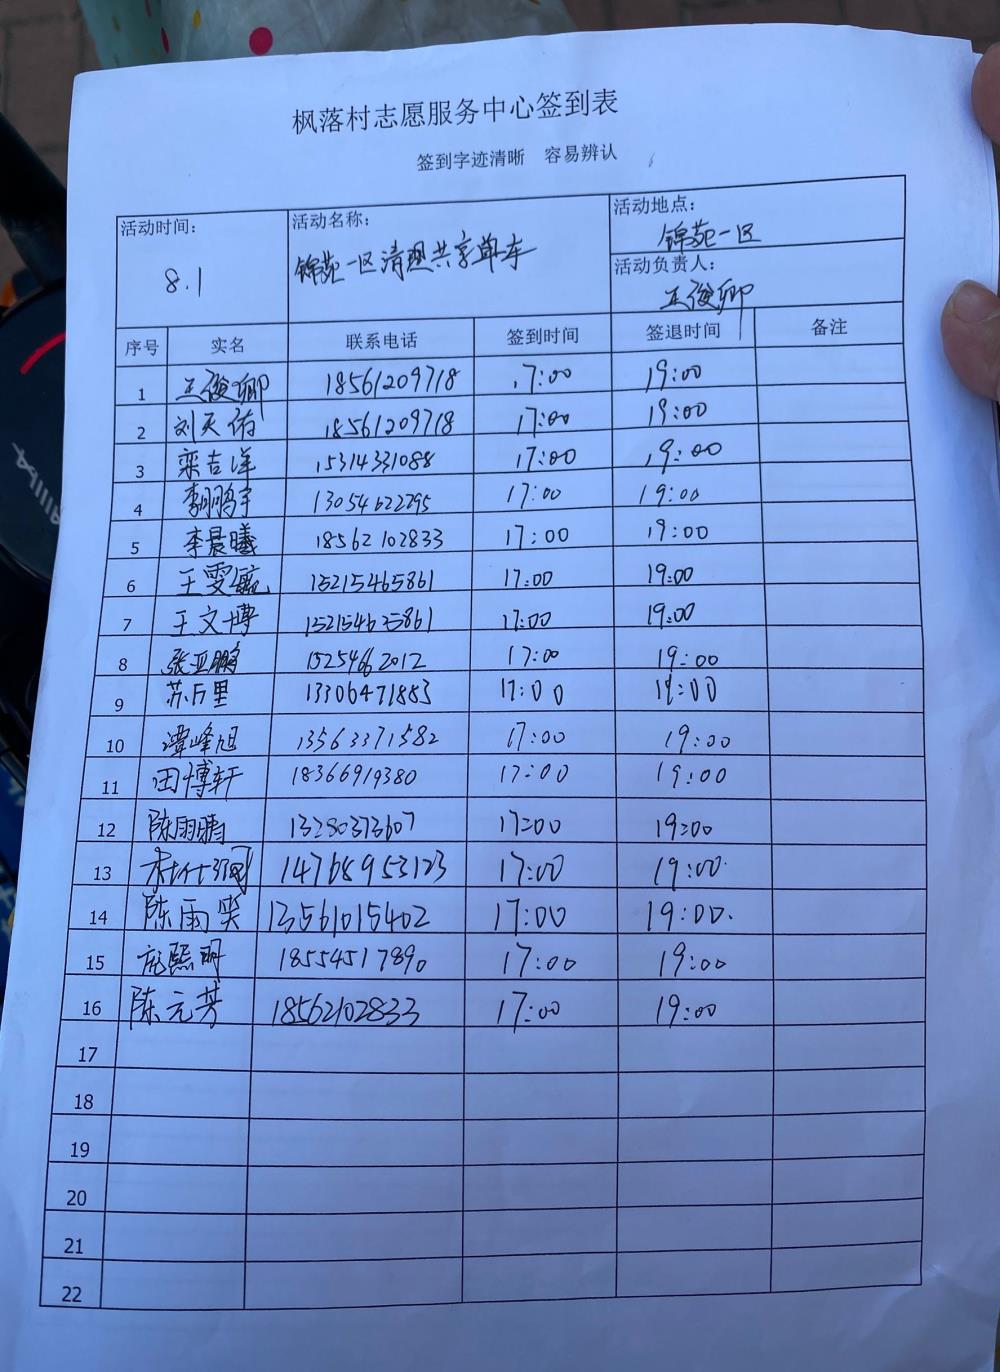 枫落村志愿服务中心签到表
签到字迹清晰 容易辨认
活动时间: 8.1
活动名称: 锦苑一区清理共享单车
活动地点: 锦苑一区
活动负责人: 王俊卿
序号 实名 联系电话 签到时间 签退时间 备注
1 王俊卿 18561209718 17:00 19:00
2 刘天佑 18561209718 17:00 19:00
3 栾吉洋 15314331088 17:00 19:00
4 李鹏宇 13054622295 17:00 19:00
5 李晨曦 18562102833 17:00 19:00
6 王雯毓 15215465861 17:00 19:00
7 王文博 15215465861 17:00 19:00
8 张亚鹏 15254662012 17:00 19:00
9 苏万里 13306471883 17:00 19:00
10 谭峰旭 13563371582 17:00 19:00
11 田博轩 18366919380 17:00 19:00
12 陈雨晴 13280373607 17:00 19:00
13 14768953123 17:00 19:00
14 陈雨笑 13561015402 17:00 19:00
15 庞熙明 18554517890 17:00 19:00
16 陈元芳 18562102833 17:00 19:00
17
18
19
20
21
22